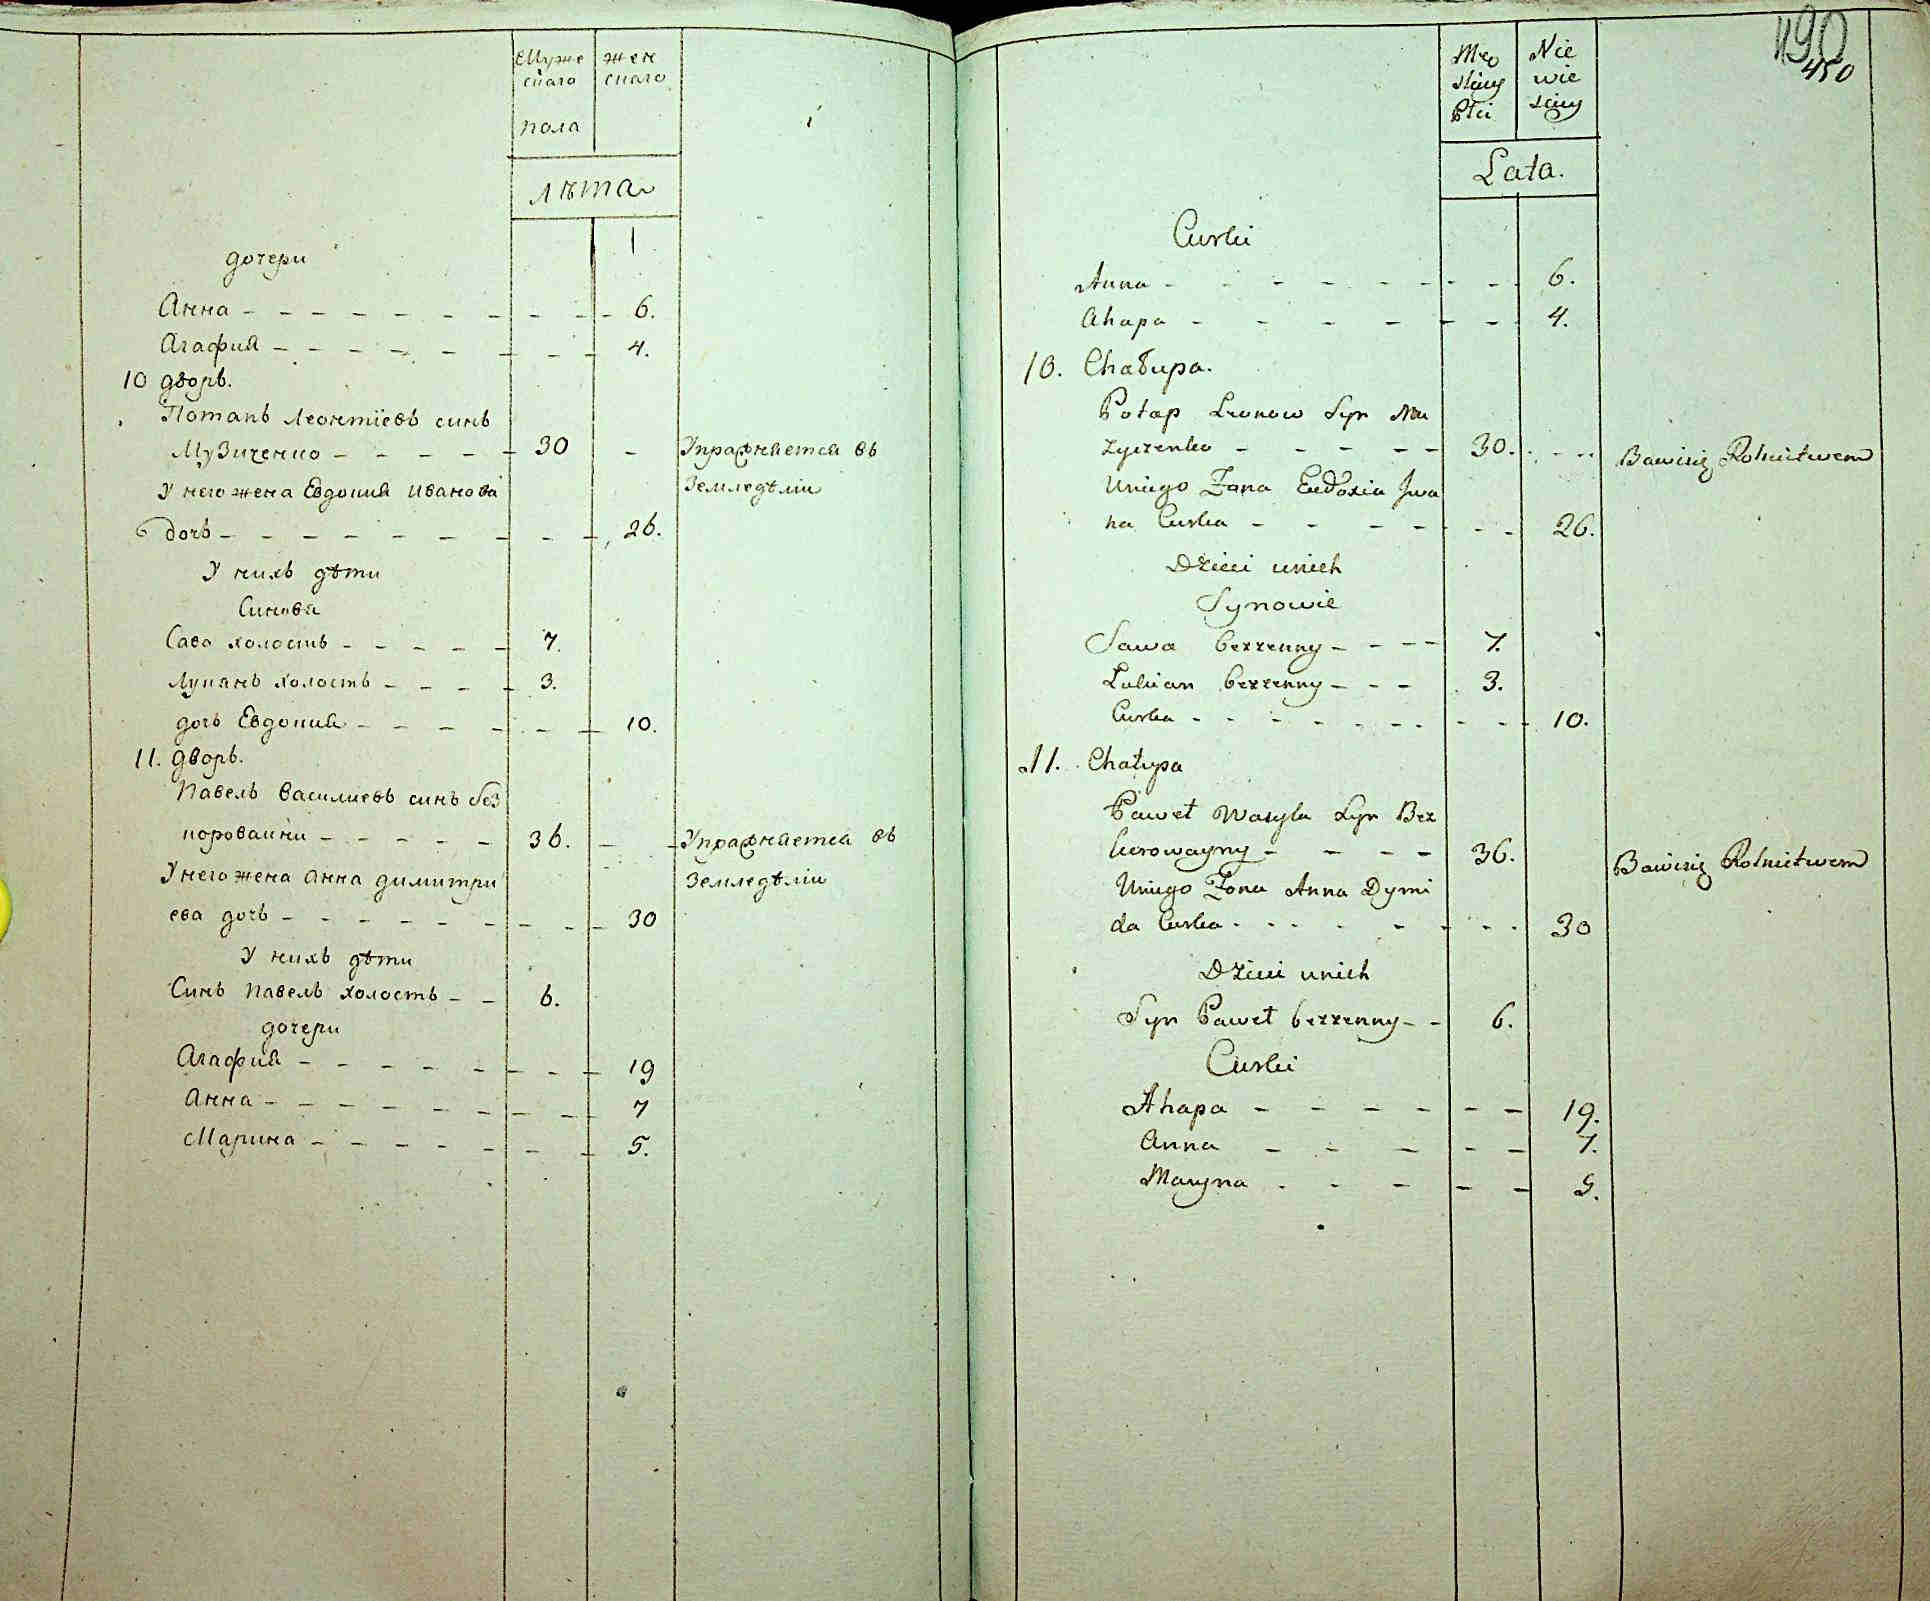 Муже
скаго
пола
жен
скаго
лѣта
дочери
Анна 6.
Агафия 4.
10 дворъ.
Потапъ Леонтїевъ синъ
Музиченко 30 Упражняется въ
Земледѣлїи
У него жена Евдокия Иванова
дочь 26.
У нихъ дѣти
Синовя
Сава холостъ 7.
Лукянъ холостъ 3.
дочь Евдокия 10.
11. дворъ.
Павелъ Василиевъ синъ без
короваини 36. Упражняется въ
Земледѣлїи
У него жена Анна димитри
ева дочь 30
У нихъ дѣти
Синъ Павелъ холостъ 6.
дочери
Агафия 19
Анна 7
Марина 5.
490
450
Męs
skiey
Płci
Nie
wie
sciey
Lata.
Curki
Anna 6.
Ahapa 4.
10. Chałupa.
Potap Leonow Syn Mu
zyczenko 30. Bawisię Rolnictwem
Uniego Zona Eudoxia Jwa
na Curka 26.
Dzieci unich
Synowie
Sawa bezzenny 7.
Lukian bezzenny 3.
Curka 10.
11. Chałupa
Paweł Wasyla Syn Bez
korowayny 36. Bawisię Rolnictwem
Uniego Zona Anna Dymi
da Curka 30
Dzieci unich
Syn Paweł bezzenny 6.
Curki
Ahapa 19.
Anna 7.
Maryna 5.